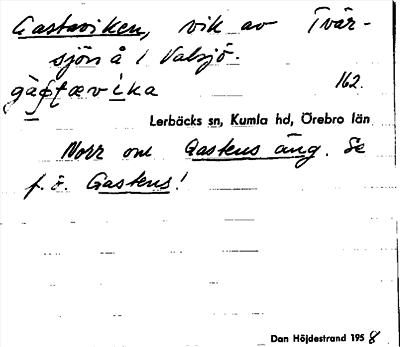 Gastaviken, vik av Tvär-
sjön å i Valsjö.
gàstævika
162.
Lerbäcks sn, Kumla hd, Örebro län
Norr om Gastens äng. Se
f. ö. Gastens!
Dan Höjdestrand 1958